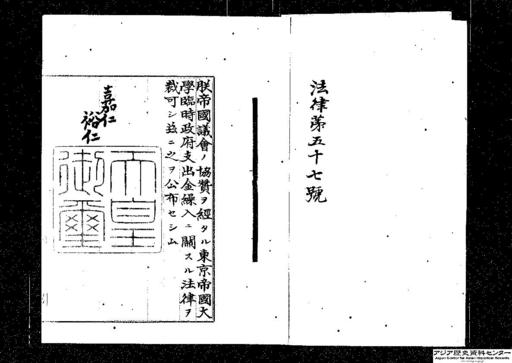 法律第五十七號
朕帝國議會ノ協贊ヲ經タル東京帝國大
學臨時政府支出金繰入ニ關スル法律ヲ
裁可シ茲ニ之ヲ公布セシム
嘉仁
裕仁
天皇
御璽
アジア歴史資料センター
Japan Center for Asian Historical Records